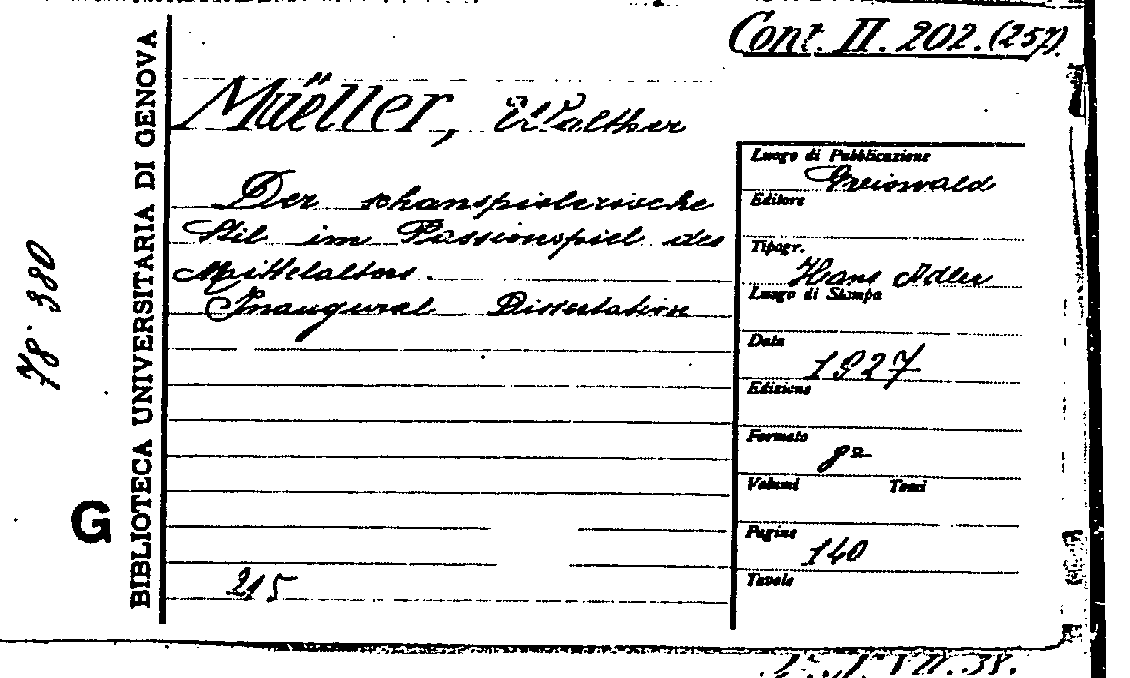 Cont. II. 202. (257).
Müeller, Walther
Der schauspielerische
Stil im Passionspiel des
Mittelalters.
Inaugural Dissertation
215
Luogo di Pubblicazione
Greisvald
Editore
Tipogr.
Hans Adler
Luogo di Stampa
Data
1927
Edizione
Formato
8º
Volumi Tomi
Pagine
140
Tavole
BIBLIOTECA UNIVERSITARIA DI GENOVA
G
78380